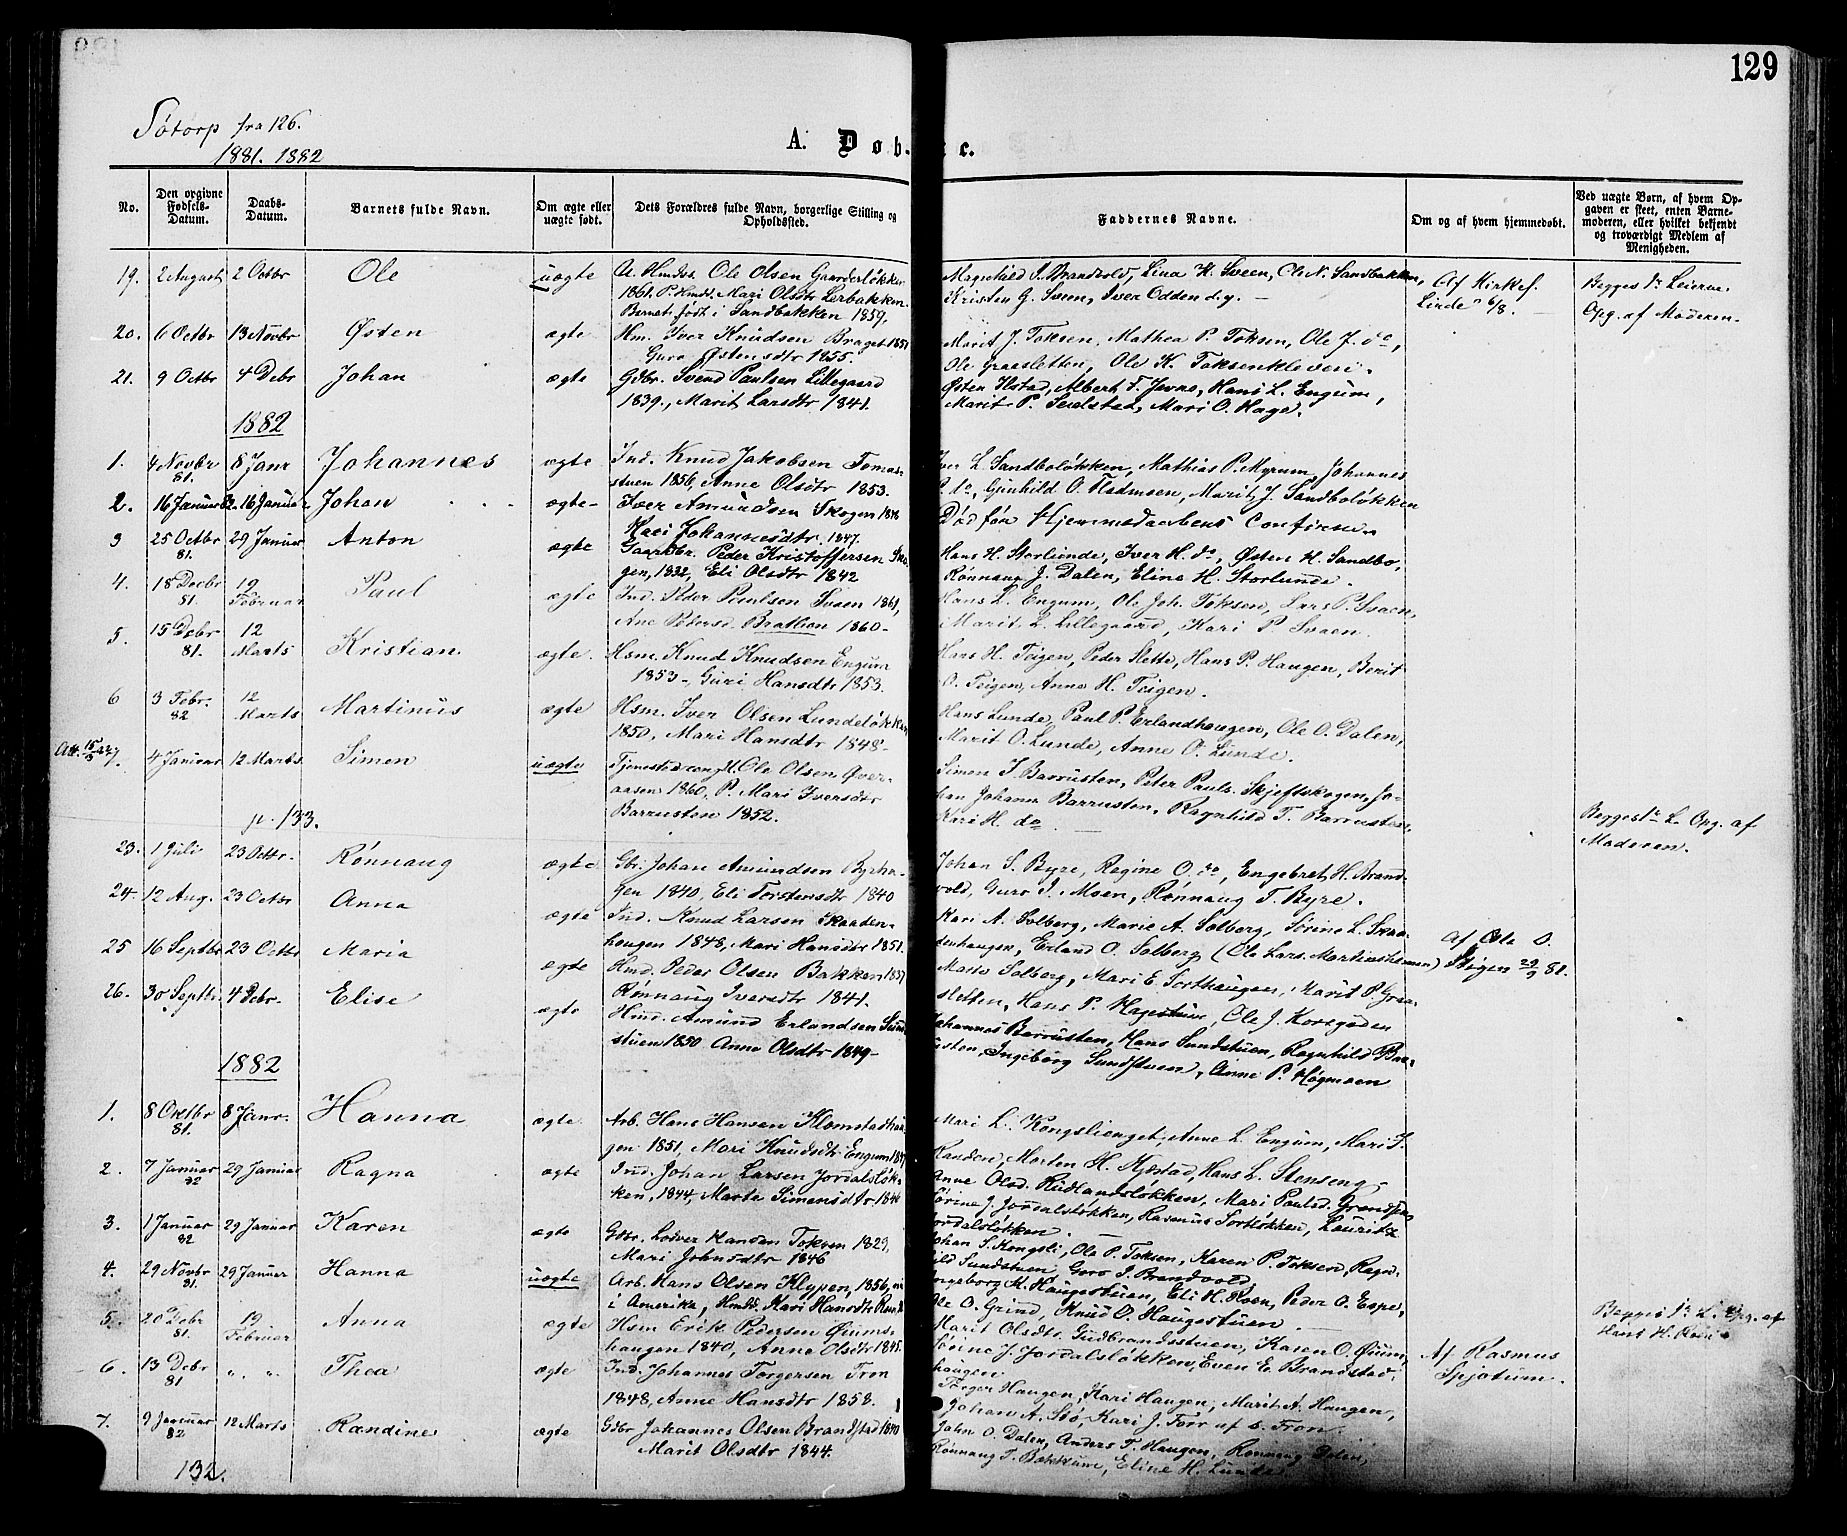 129
Sötorp fra 126.
1881. 1882
A. Døbte.
No.
Den opgivne Fødsels-Datum.
Daabs-Datum.
Barnets fulde Navn.
Om ægte eller uægte født.
Dets Forældres fulde Navn, borgerlige Stilling og Opholdssted.
Faddernes Navne.
Om og af hvem hjemmedøbt.
Ved uægte Børn, af hvem Opgaven er skeet, enten Barnemoderen, eller hvilket bekjendt og troværdigt Medlem af Menigheden.
19. 2 August 2 Octbr Ole uægte Ole Olsen Gaarderløkken
1861. P. Hmdt. Mari Olsdtr Lerbakken
Barnet født i Sandbakken 1859.
Magnhild J. Brandvold, Lina H. Sveen, Ole N. Sandbakken,
Kristen G. Sveen, Iver Odden d.y. —
Af Kirkes.
Linde 6/8.
Begges 1ste Leierm.
Opg. af Moderen.
20. 6 Octbr 13 Novbr Østen ægte Hm. Iver Knudsen Braget 1851
Guro Østensdtr 1855.
Marit J. Toksen, Mathea P. Toksen, Ole J. do,
Ole Graasletten, Ole K. Toksenkleven.
21. 9 Octbr 4 Debr Johan ægte Gbr. Svend Paulsen Lillegaard
1839., Marit Larsdtr 1841.
Østen Ilstad, Albert T. Jevne, Hans L. Engum,
Marit P. Sculstad, Mari O. Hage.
1882
1. 4 Novbr 81. 8 Janr Johannes ægte Ind. Knud Jakobsen Tomas-
stuen 1856, Anne Olsdtr 1853.
Iver L. Sandboløkken, Mathias P. Myrum, Johannes
do, Gunhild O. Fladmoen, Marit J. Sandboløkken
2. 16 Januar 82. 16 Januar Johan ægte- Iver Amundsen Skogen 1848
Kari Johannesdtr. 1847.
Død før Hjemmedaabens Confirm.
3 25 Octbr 81. 29 Januar Anton ægte Gaardbr. Peder Kristoffersen
gen, 1832, Eli Olsdtr 1842
Hans H. Storlunde, Iver H. do, Østen H. Sandbo,
Rønnaug J. Dalen, Eline H. Storlunde.
4. 18 Decbr 81. 19 Februar Paul ægte Ind. Peder Paulsen Svaen 1861,
Ane Petersd. Bratlien 1860-
Hans L. Engum, Ole Joh. Toksen, Lars P. Svaen,
Marit L. Lillegaard, Kari P. Svaen.
5. 15 Debr 81. 12 Marts Kristian ægte. Hsm. Knud Knudsen Engum
1853- Guri Hansdtr 1853.
Hans H. Teigen, Peder Slette, Hans P. Haugen, Berit
O. Teigen, Anne H. Teigen.
6 3 Febr. 82 12 Marts Martinus ægte Hsm. Iver Olsen Lundeløkken
1850, Mari Hansdtr 1848-
Hans Lunde, Paul P. Erlandhaugen, Ole O. Dalen,
Marit O. Lunde, Anne O. Lunde.
7. 4 Januar 12 Marts. Simen uægte Ole Olsen Øver-
aasen 1860, P. Mari Iversdtr
Barrusten 1852.
Simen I. Barrusten, Peter Pauls. Skjeftskogen, Jo-
han Johans Barrusten, Ragnhild T. Barrusten,
Kari H. do
Begges 1ste L. Opg. af
Moderen.
p. 133.
23. 1 Juli 23 Octbr. Rønnaug ægte Gbr. Johan Amundsen Byrha-
gen 1840, Eli Torstensdtr 1840
Johan S. Byre, Regine O. do, Engebret H. Brand-
vold, Guro I. Moen, Rønnaug T. Byre.
24. 12 Aug. 23 Octbr Anna ægte Ind. Knud Larsen Skaaden-
haugen 1848, Mari Hansdtr 1851.
Kari A. Solberg, Marie A. Solberg, Sørine L. Skaa-
denhaugen, Erland O. Solberg (Ole Lars. Martinshammen)
25 16 Septbr 23 Octbr Maria ægte Hmd. Peder Olsen Bakken 1837
Rønnaug Iversdtr 1841.
Marte Solberg, Mari E. Sorthaugen, Marit P. Graa-
sletten, Hans P. Hagestuen, Ole J. Korsgøden
Af Ole O.
Steigen 29/9 81.
26. 30 Septbr 4 Debr. Elise ægte Hmd. Amund Erlandsen
stuen 1850 Anne Olsdtr 1849-
Johannes Barrusten, Hans Sundstuen, Ragnhild Bar-
rusten, Ingeborg Sundstuen, Anne P. Høgmoen
1882
1. 8 Octbr 81. 8 Janr. Hanna ægte. Arb. Hans Hansen Klomstadhau-
gen 1851, Mari Knudsdtr Engum
Mari L. Kongslienget, Anne L. Engum, Mari I.
Randen, Morten H. Hjestad, Hans L. Stenseng
2. 7 Januar 82 29 Januar Ragna ægte Ind. Johan Larsen Jordalsløk-
ken, 1844, Marte Simensdtr 1846
Anne Olsd. Rudlandsløkken, Mari Paulsd. Grandseng
Sørine J. Jordalsløkken, Rasmus Sortløkken, Lauritz
Jordalsløkken.
3. 1 Januar 82 29 Januar Karen ægte Gbr. Lodver Hansen Toksen 1829,
Mari Johnsdtr 1846
Johan S. Kongsli, Ole P. Toksen, Karen P. Toksen, Ragn-
hild Sundstuen, Guro I. Brandvold
4. 29 Novbr 81. 29 Januar Hanna uægte Arb. Hans Olsen Klypen, 1856, nu
i Amerika, Hmdt. Kari Hansdtr
Ingeborg K. Haugestuen, Eli H. Roen, Peder O. Espe,
Ole O. Grind, Knud O. Haugestuen.
Begges 1ste L. Opg. af
Hans H. Roen
5. 20 Debr 81. 19 Februar Anna ægte Hsm Erik Pedersen Øiums-
haugen 1840, Anne Olsdtr 1845.
Marit Olsdtr. Gudbrandsstuen, Karen O. Øium,
Sørine J. Jordalsløkken, Even E. Brandstad,
haugen
Af Rasmus
Spjotum.
6. 13 Debr 81 " " Thea ægte Ind. Johannes Torgersen Fron
1848, Anne Hansdtr 1858.
Torger Haugen, Kari Haugen, Marit A. Haugen,
Johan A. Stø, Kari J. Forr af S. Fron.
7. 9 Januar 82 12 Marts Randine ægte Gbr Johannes Olsen Brandstad 1840
Marit Olsdtr 1844.
John O. Dalen, Anders T. Haugen, Rønnaug Dalen,
Rønnaug T. Bækkum, Eline H. Lunde
132.